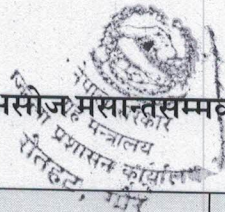 असोज मसान्तसम्म
नेपाल सरकार
गृह मन्त्रालय
प्रशासन कार्यालय
रौतहट, गौर